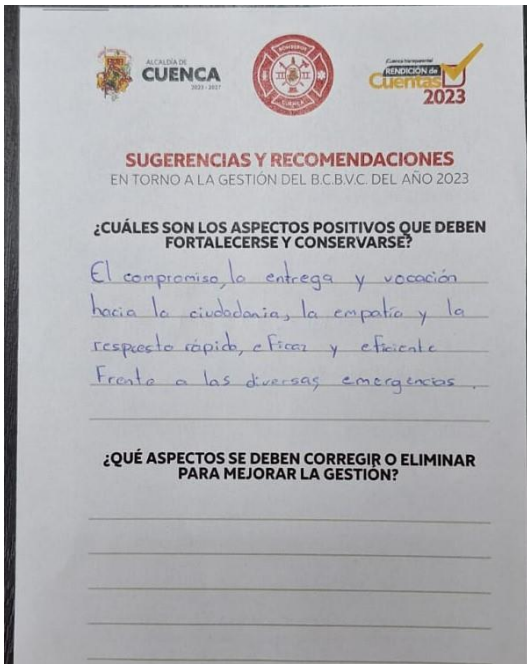 ALCALDÍA DE
CUENCA
2023 - 2027
BOMBEROS
CUENCA
¡Cuenca transparente!
RENDICIÓN de
Cuentas
2023
SUGERENCIAS Y RECOMENDACIONES
EN TORNO A LA GESTIÓN DEL B.C.B.V.C. DEL AÑO 2023
¿CUÁLES SON LOS ASPECTOS POSITIVOS QUE DEBEN
FORTALECERSE Y CONSERVARSE?
El compromiso, la entrega y vocación
hacia la ciudadania, la empatía y la
respuesta rápida, eficaz y eficiente
Frente a las diversas emergencias.
¿QUÉ ASPECTOS SE DEBEN CORREGIR O ELIMINAR
PARA MEJORAR LA GESTIÓN?